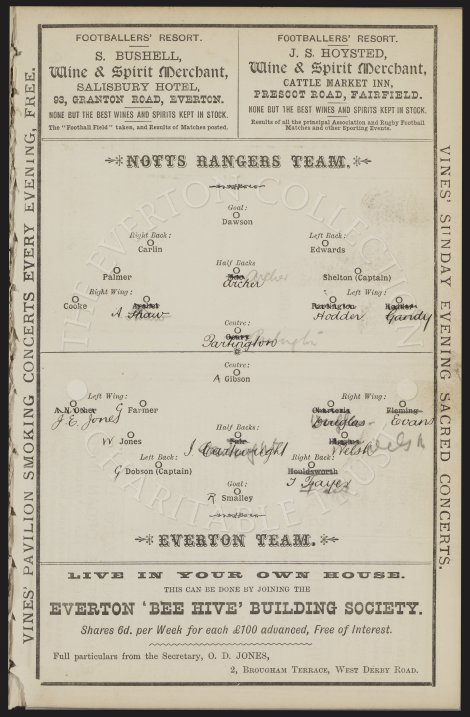 FOOTBALLERS' RESORT.
S. BUSHELL,
Wine & Spirit Merchant,
SALISBURY HOTEL,
93, GRANTON ROAD, EVERTON.
NONE BUT THE BEST WINES AND SPIRITS KEPT IN STOCK.
The "Football Field" taken, and Results of Matches posted.
FOOTBALLERS' RESORT.
J. S. HOYSTED,
Wine & Spirit Merchant,
CATTLE MARKET INN,
PRESCOT ROAD, FAIRFIELD.
NONE BUT THE BEST WINES AND SPIRITS KEPT IN STOCK.
Results of all the principal Association and Rugby Football
Matches and other Sporting Events.
VINES' PAVILION SMOKING CONCERTS EVERY EVENING, FREE.
VINES' SUNDAY EVENING SACRED CONCERTS.
THE EVERTON COLLECTION
CHARITABLE TRUST
NOTTS RANGERS TEAM.
Goal:
Dawson
Right Back:
Carlin
Left Back:
Edwards
Half Backs
Palmer
Archer
Archer
Shelton (Captain)
Right Wing:
Left Wing:
Cooke
A Shaw
Partington
Hodder
Gandy
Centre:
Partington
Centre:
A Gibson
Left Wing:
Right Wing:
A. N. Other
J. E. Jones
G Farmer
Charters
Douglas
Fleming
Evans
Half Backs:
W Jones
Welsh
Welsh
Left Back:
Right Back:
G Dobson (Captain)
Houldsworth
Goal:
R Smalley
EVERTON TEAM.
LIVE IN YOUR OWN HOUSE.
THIS CAN BE DONE BY JOINING THE
EVERTON 'BEE HIVE' BUILDING SOCIETY.
Shares 6d. per Week for each £100 advanced, Free of Interest.
Full particulars from the Secretary, O. D. JONES,
2, BROUGHAM TERRACE, WEST DERBY ROAD.